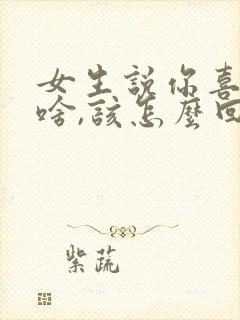 女生説你喜
啥,該怎麼回
紫蔬